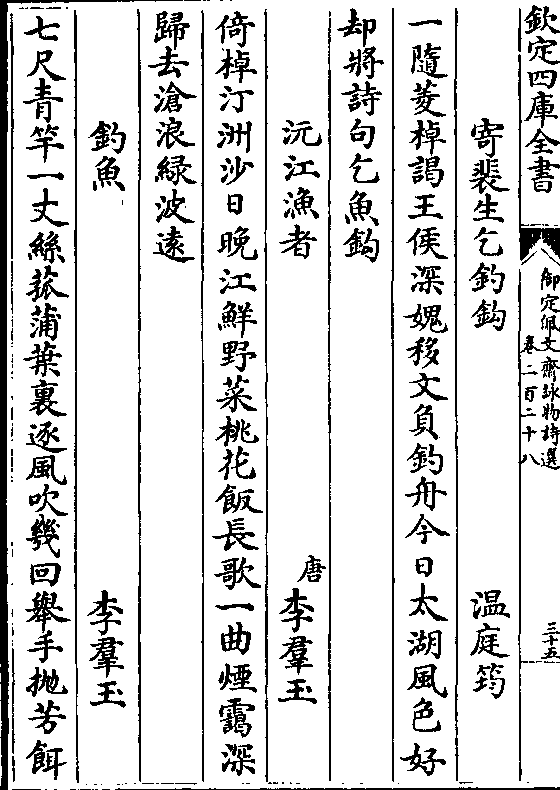 欽定四庫全書
御定佩文齋詠物詩選
卷二百二十八
三十五
寄裴生乞釣鈎
温庭筠
一隨菱棹謁王侯深媿移文負釣舟今日太湖風色好
却將詩句乞魚鈎
沅江漁者
唐
李羣玉
倚棹汀洲沙日晚江鮮野菜桃花飯長歌一曲煙靄深
歸去滄浪緑波遠
釣魚
李羣玉
七尺青竿一丈絲菰蒲葉裏逐風吹幾回舉手抛芳餌